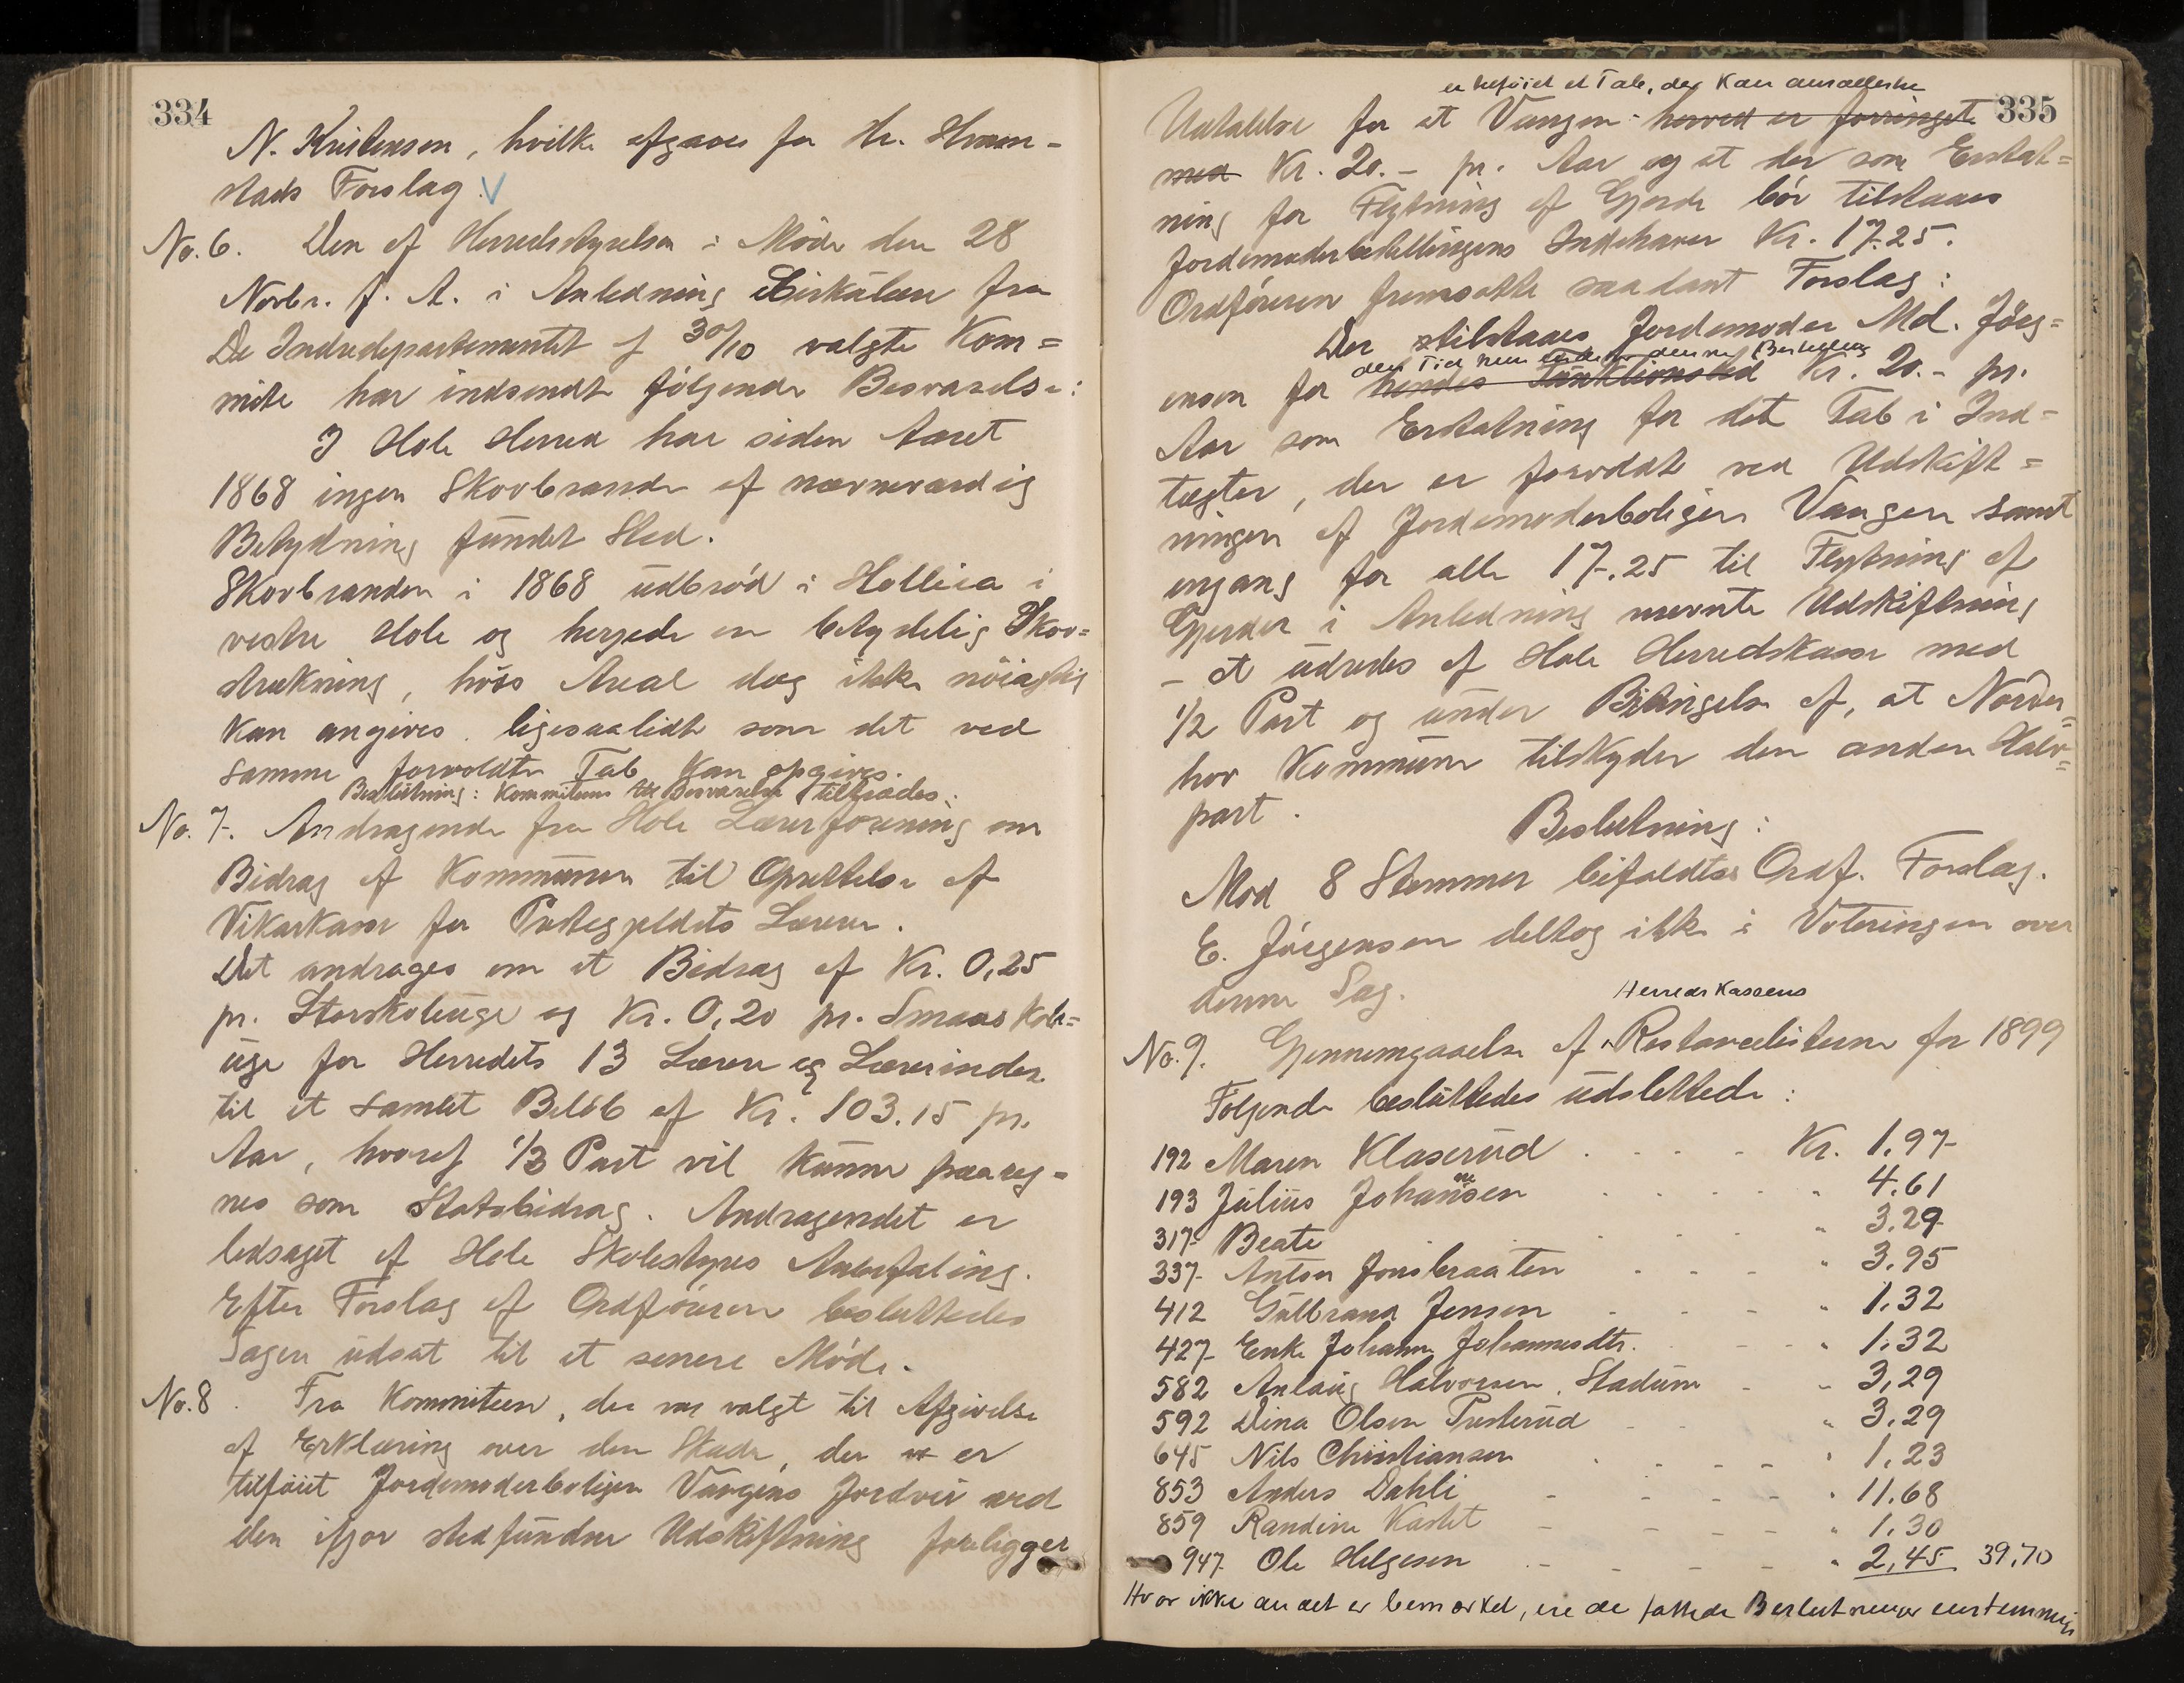 334
N. Kristensen, hvilke afgaves for Hr. Hroam-
stads Forslag.
No. 6. Den af Herredsstyrelsen i Møde den 28
Novbr. f. A. i Anledning Cirkulære fra
De Indredepartementet af 30/10 valgte Kom=
mite har indsendt følgende Besvarelse:
I Hole Herred har siden Aaret
1868 ingen Skovbrande af nævneværdig
Betydning fundet Sted.
Skovbranden i 1868 udbrød i Hollia i
vestre Hole og herjede en betydelig Skov=
strækning, hvis Areal dog ikke nøiagtig
kan angives ligesaalidt som det ved
samme forvoldte Tab kan opgives.
Beslutning: Kommiteens Besvarelse tiltrædes.
No. 7. Andragende fra Hole Lærerforening om
Bidrag af Kommunen til Oprettelse af
Vikarkasse for Præstegjeldets Lærere.
Det andrages om et Bidrag af Kr. 0,25
pr. Storskoleuge og Kr. 0,20 pr. Smaaskole=
uge for Herredets 13 Lærere og Lærerinder
til et samlet Beløb af Kr. 103.15 pr.
Aar, hvoraf 1/3 Part vil kunne paareg=
nes som Statsbidrag. Andragendet er
ledsaget af Hole Skolestyres Anbefaling.
Efter Forslag af Ordføreren besluttedes
Sagen udsat til et senere Møde.
No. 8. Fra Kommiteen, der var valgt til Afgivelse
af Erklæring over den Skade, der er
tilføiet Jordemoderboligen Vangens Jordvei ved
den ifjor stedfundne Udskiftning foreligger
335
er tilføiet et Tab, der kan ansættes til
Udtalelse for at Vangen herved er forringet
med Kr. 20.- pr. Aar og at der som Erstat=
ning for Flytning af Gjerde bør tilstaaes
Jordemoderbestillingens Indehaver Kr. 17.25.
Ordføreren fremsatte saadant Forslag:
Der tilstaaes Jordemoder Md. Jörg=
den Tid hun denne Bestilling
ensen for hendes Funktionstid Kr. 20.- pr.
Aar som Erstatning for det Tab i Ind=
tægter, der er forvoldt ved Udskift=
ningen af Jordemoderboligen Vangen samt
engang for alle 17.25 til Flytning af
Gjerder i Anledning nævnte Udskiftning
- at udredes af Hole Herredskasse med
1/2 Part og under Betingelse af, at Norder=
hov Kommune tilskyder den anden Halv=
part.
Beslutning:
Mod 8 Stemmer bifaldtes Ordf. Forslag.
E. Jörgensen deltog ikke i Voteringen over
denne Sag.
Herredskassens
No. 9. Gjennemgaaelse af Restancelisterne for 1899
Følgende besluttedes udslettede:
192 Maren Klaserud . . . . Kr. 1.97
193 Julius Johannesen . . . . " 4.61
317 Beate . . . . " 3.29
337 Anton Jonsbraaten . . . " 3.95
412 Gulbrand Jensen . . . " 1.32
427 Enke Johanne Johannesdtr. . . " 1.32
582 Anlaug Halvorsen, Stadum - " 3,29
592 Dina Olsen Præsterud - - " 3.29
645 Nils Christiansen . . . . " 1,23
853 Anders Dahli - - - - " 11.68
859 Randine Kastet - - - - " 1.30
947 Ole Helgesen - - - - " 2,45 39,70
Hvor ikke andet er bemærket, ere de fattede Beslutninger eenstemmige